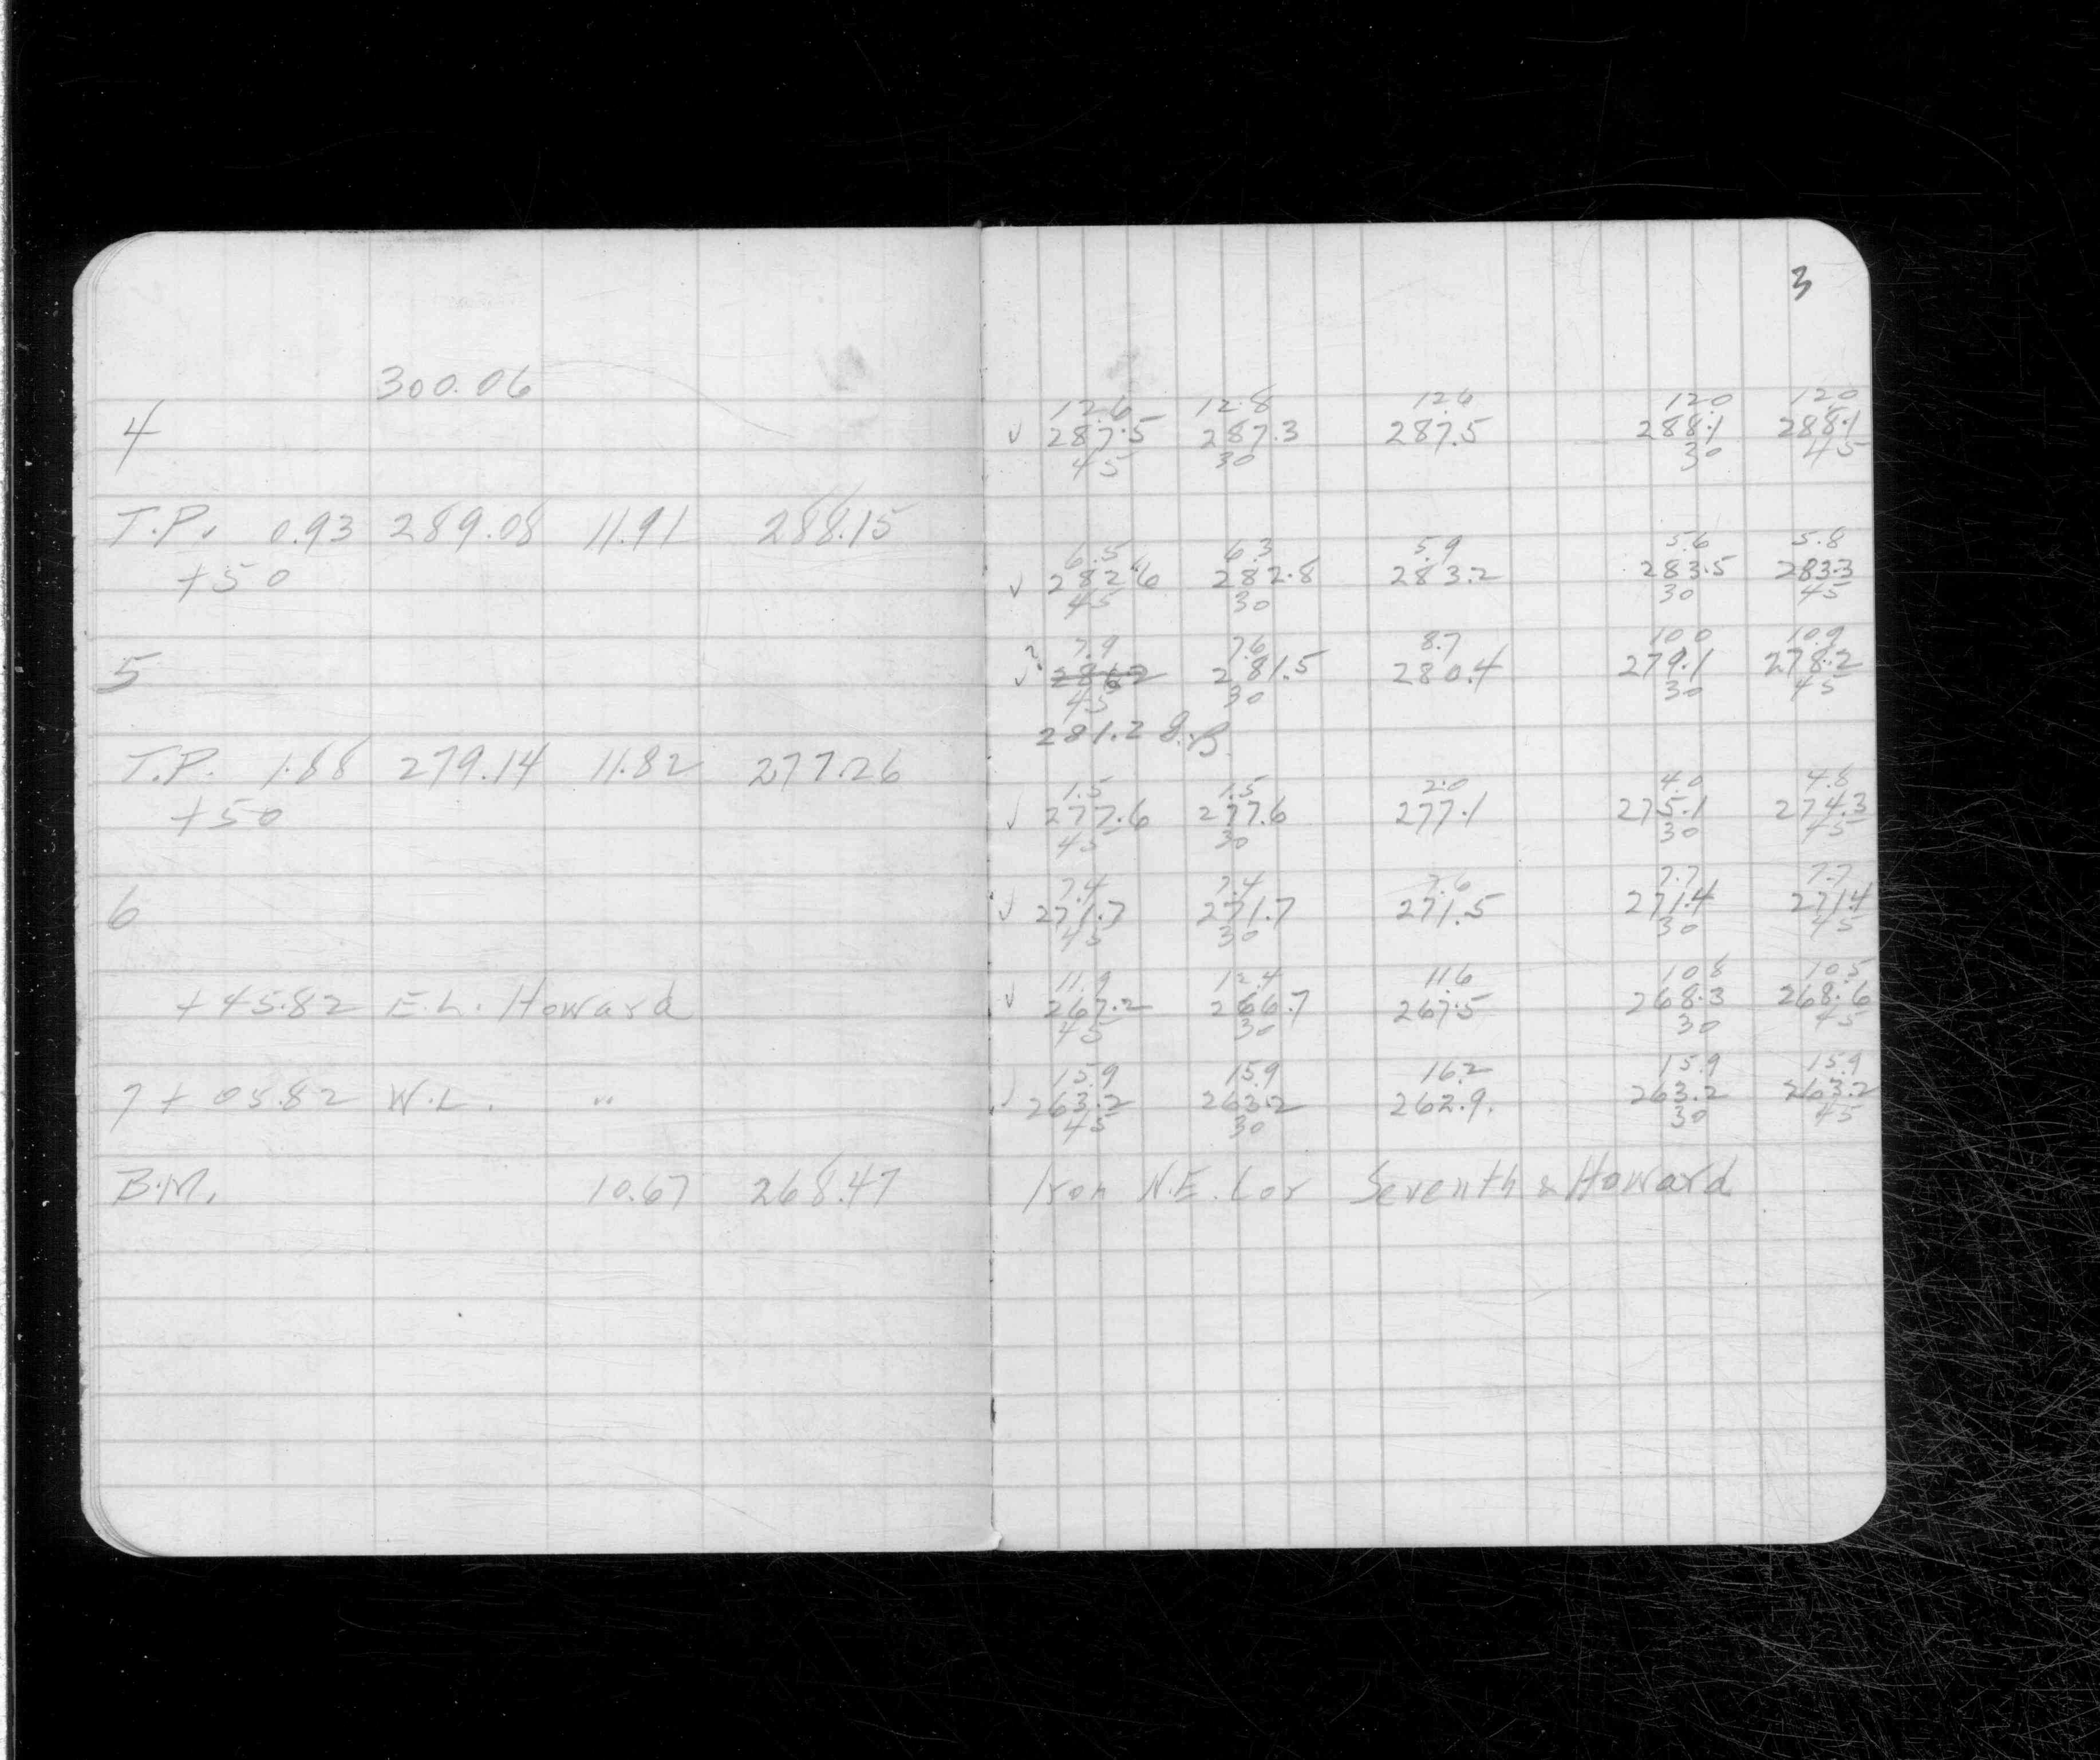 3
300.06
12.6 12.8 12.6 12.0 12.0
4 √ 287.5 287.3 287.5 288.1 288.1
45 30 30 45
T.P. 0.93 289.08 11.91 288.15
6.5 6.3 5.9 5.6 5.8
+50 √ 282.6 282.8 283.2 283.5 283.3
45 30 30 45
? 7.9 7.6 8.7 10.0 10.9
5 √ 281.5 280.4 279.1 278.2
45 30 30 45
281.2
T.P. 1.88 279.14 11.82 277.26
1.5 1.5 2.0 4.0 4.8
+50 √ 277.6 277.6 277.1 275.1 274.3
45 30 30 45
7.4 7.4 7.6 7.7 7.7
6 √ 271.7 271.7 271.5 271.4 271.4
45 30 30 45
11.9 12.4 11.6 10.8 10.5
+45.82 E.L. Howard √ 267.2 266.7 267.5 268.3 268.6
45 30 30 45
15.9 15.9 16.2 15.9 15.9
7+05.82 W.L. " √ 263.2 263.2 262.9. 263.2 263.2
45 30 30 45
B.M. 10.67 268.47 Iron N.E. Cor Seventh & Howard